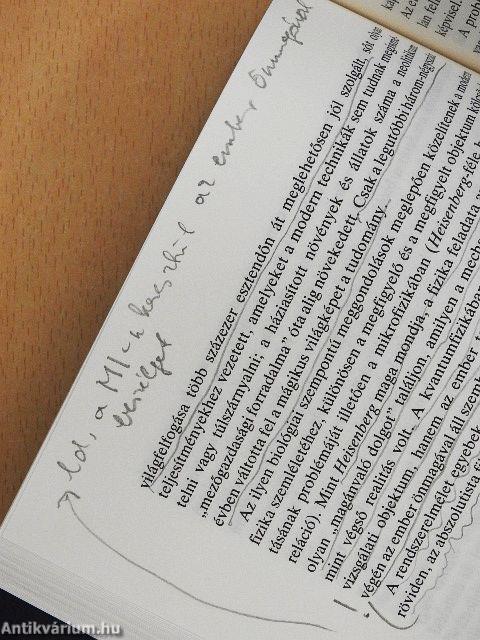 ld. a MI-n keresztül az ember önmagával
beszélget
világfelfogása több százezer esztendőn át meglehetősen jól szolgált, sőt olyan
teljesítményekhez vezetett, amelyeket a modern technikák sem tudnak megismé-
telni vagy túlszárnyalni; a háziasított növények és állatok száma a neolitikus
„mezőgazdasági forradalma” óta alig növekedett. Csak a legutóbbi három-négyszáz
évben váltotta fel a mágikus világképet a tudomány.
Az ilyen biológiai szempontú meggondolások meglepően közelítenek a modern
fizika szemléletéhez, különösen a megfigyelő és a megfigyelt objektum
tásának problémáját illetően a mikrofizikában (Heisenberg-féle
reláció). Mint Heisenberg maga mondja, a fizika feladata
olyan „magánvaló dolgor” találjon, amilyen a
mint végső realitás volt. A kvantumfizikában
vizsgálati objektum, hanem az ember
végén az ember önmagával áll szemben
A rendszerelmélet egyebek
röviden, az abszolútista
!
Az e
lan
képvisel.
A
Antikvárium.hu